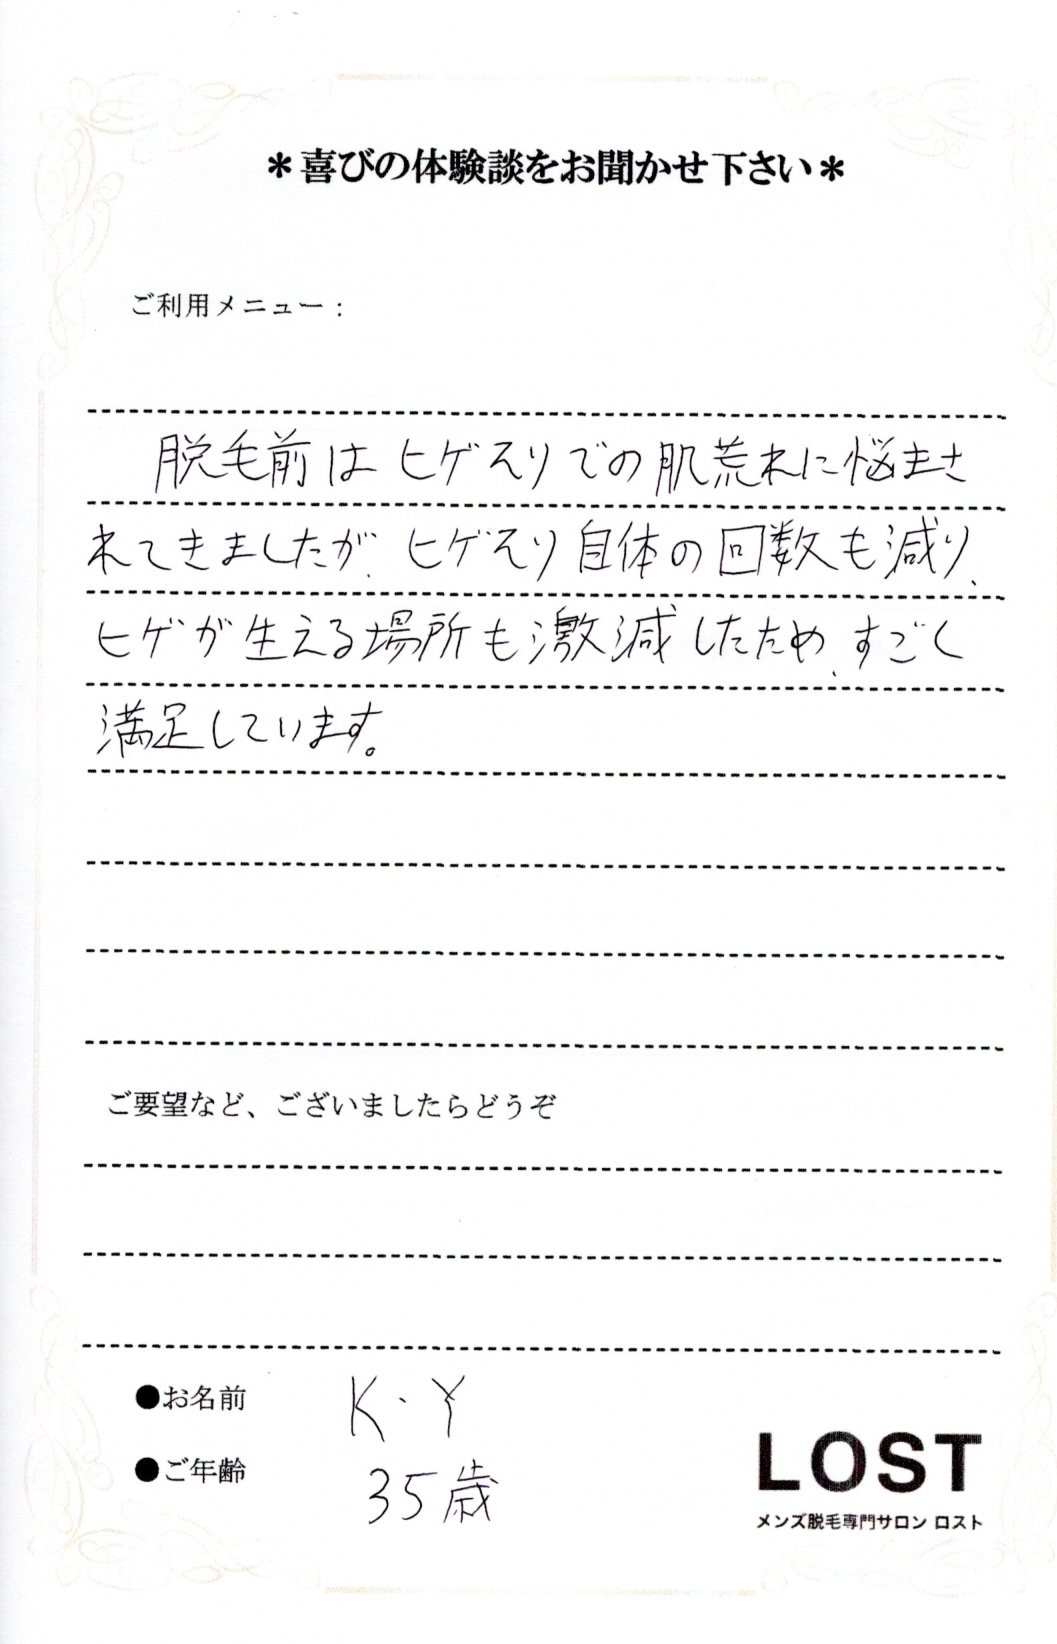 ＊喜びの体験談をお聞かせ下さい＊
ご利用メニュー：
脱毛前はヒゲそりでの肌荒れに悩まさ
れてきましたが、ヒゲそり自体の回数も減り、
ヒゲが生える場所も激減したため、すごく
満足しています。
ご要望など、ございましたらどうぞ
●お名前 K・Y
●ご年齢 35歳
LOST
メンズ脱毛専門サロン ロスト